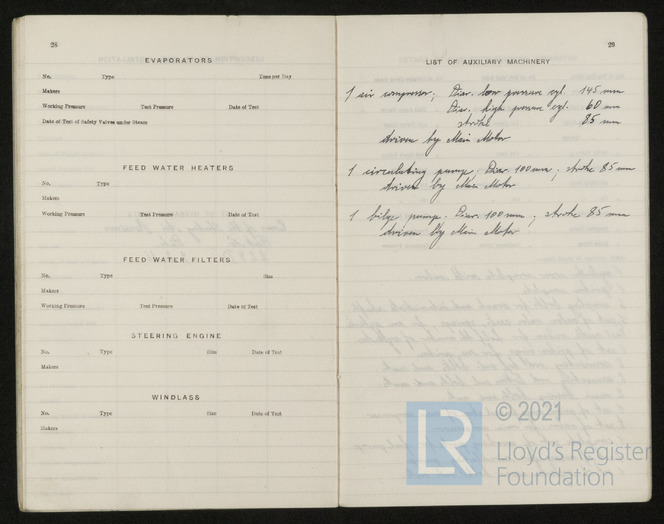 28
EVAPORATORS
No. Type Tons per Day
Makers
Working Pressure Test Pressure Date of Test
Date of Test of Safety Valves under Steam
FEED WATER HEATERS
No. Type
Makers
Working Pressure Test Pressure Date of Test
FEED WATER FILTERS
No. Type Size
Makers
Working Pressure Test Pressure Date of Test
STEERING ENGINE
No. Type Size Date of Test
Makers
WINDLASS
No. Type Size Date of Test
Makers
29
LIST OF AUXILIARY MACHINERY
1 air compressor; Diar. low pressure cyl. 145 mm
Diar. high pressure cyl. 60 mm
stroke 85 mm
driven by Main Motor
1 circulating pump; Diar. 100 mm; stroke 85 mm
driven by Main Motor
1 bilge pump. Diar. 100 mm; stroke 85 mm
driven by Main Motor
LR © 2021
Lloyd's Register
Foundation